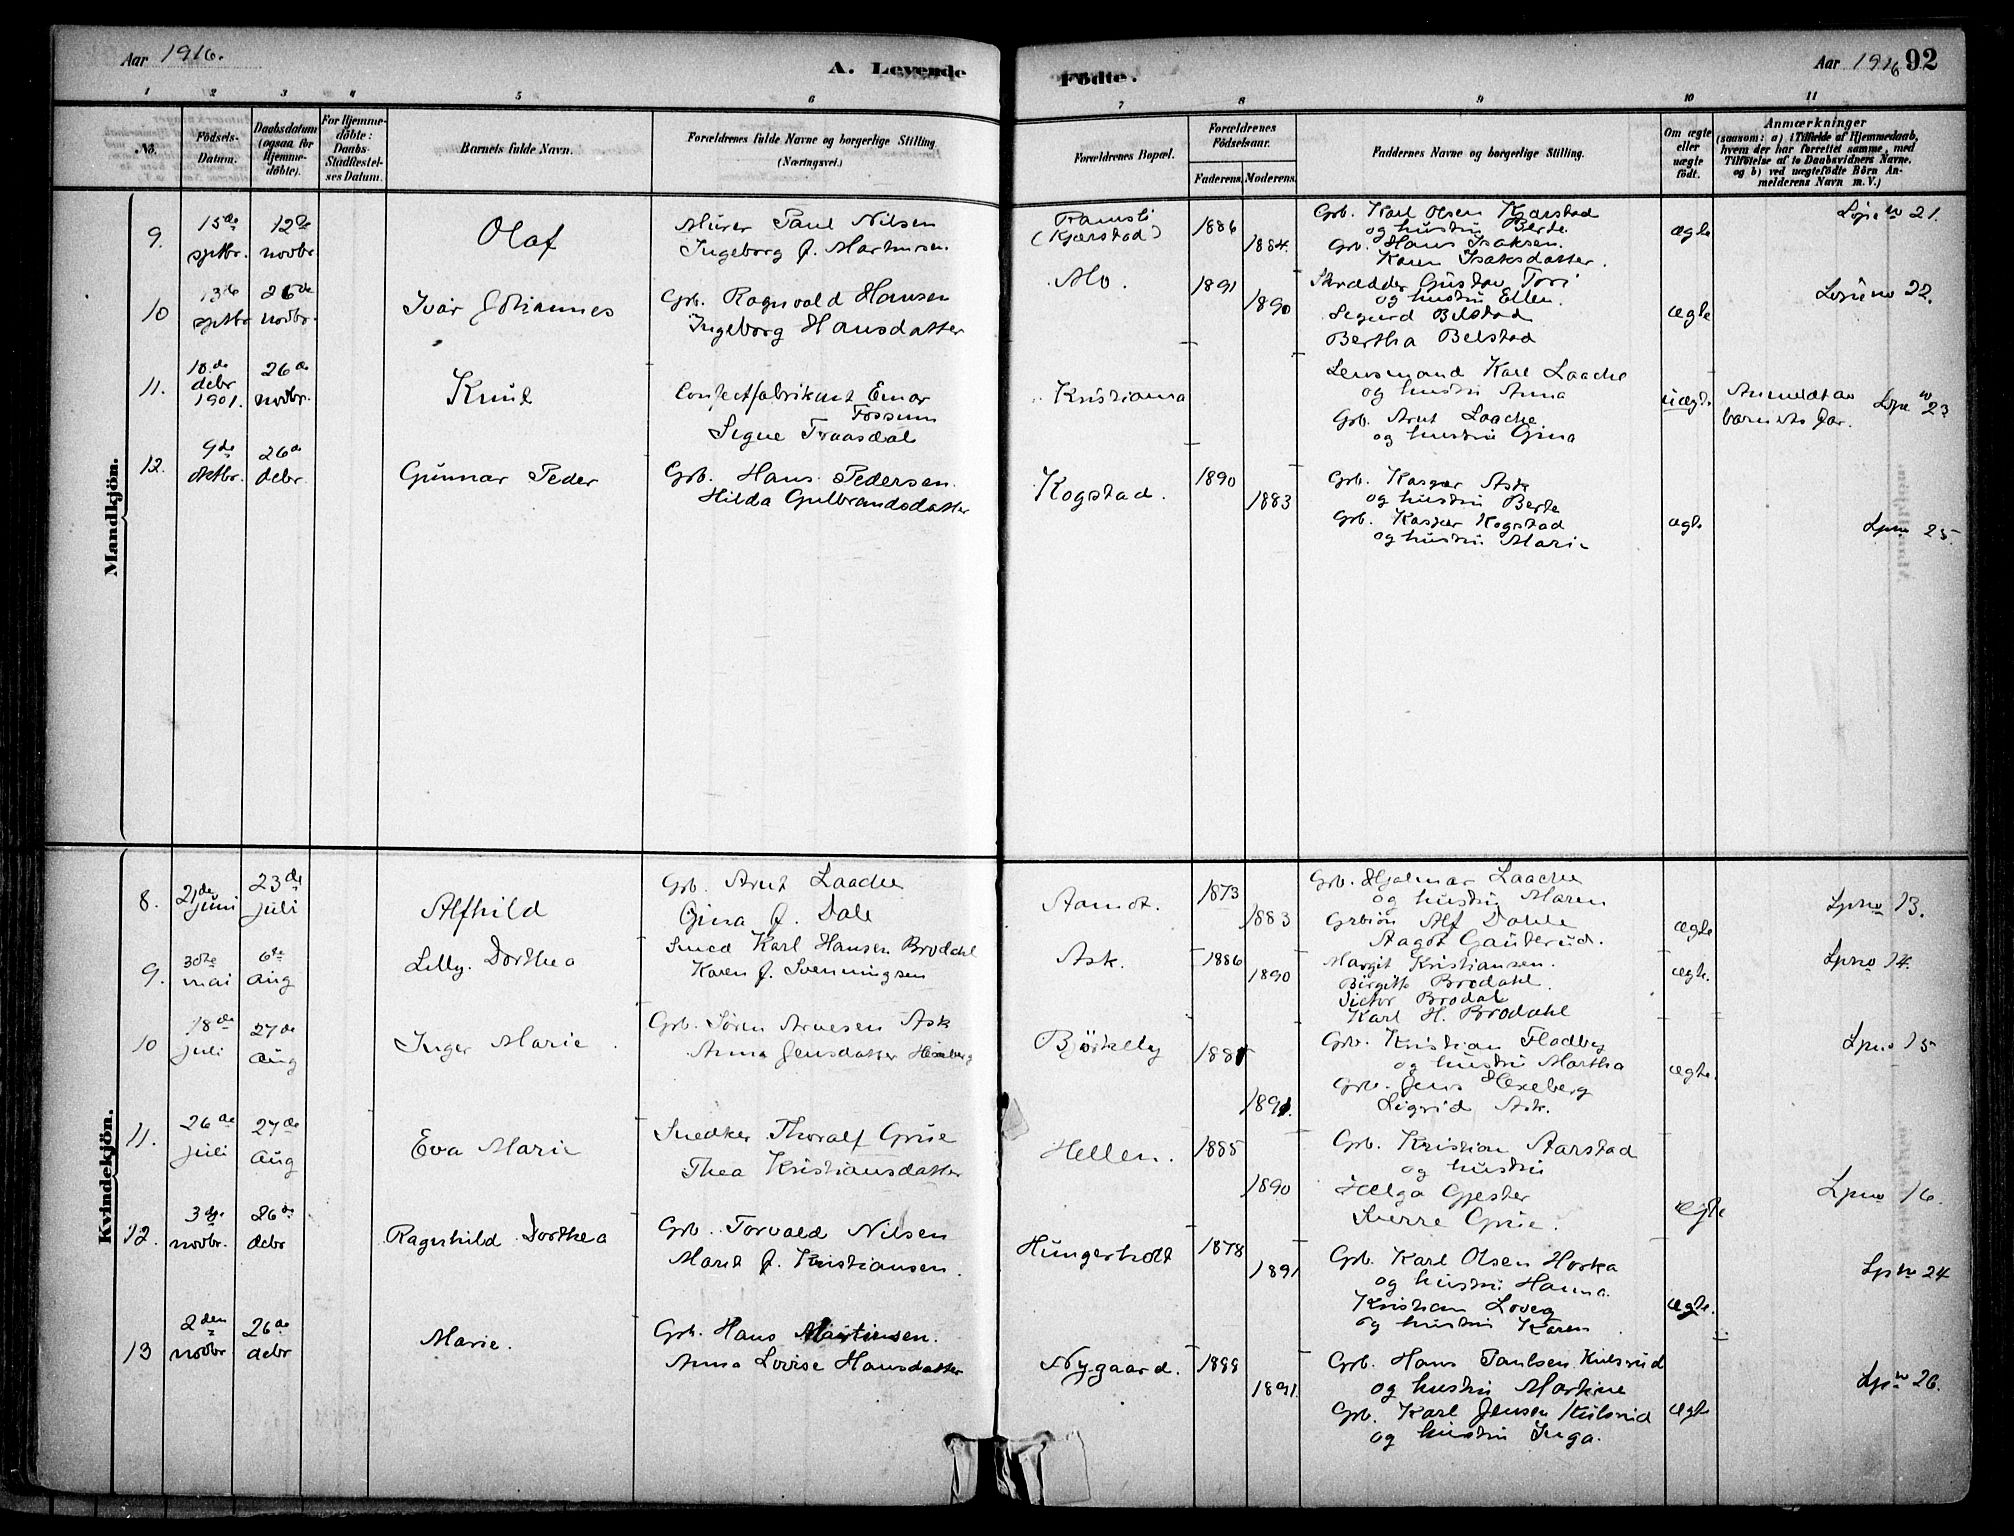 Aar 1916.
A. Levende
Födte.
Aar 1916 92
1 2 3 4 5 6 7 8 9 10 11
No.
Födsels-
Datum.
Daabsdatum
(ogsaa for
Hjemme-
döbte).
For Hjemme-
döbte:
Daabs-
Stadfæstel-
ses Datum.
Barnets fulde Navn.
Forældrenes fulde Navne og borgerlige Stilling
(Næringsvei.)
Forældrenes Bopæl.
Forældrenes
Födselsaar.
Faderens. Moderens.
Faddernes Navne og borgerlige Stilling.
Om ægte
eller
uægte
födt.
Anmærkninger
(saasom: a) i Tilfælde af Hjemmedaab,
hvem der har forrettet samme, med
Tilföielse af to Daabsvidners Navne,
og b) ved uægtefödte Börn An-
melderens Navn m. V.)
Mandkjön.
9. 15de septbr. 12te novbr Olaf
Murer Paul Nilsen
Ingeborg f. Martinsen.
(Kjærstad) 1886 1884.
Grb. Karl Olsen Kjærstad
og hustru Berte
Grb. Hans Isaksen.
Karen Isaksdatter.
ægte Løpeno 21.
10 13de septbr 26de novbr. Ivar Johannes
Grb. Ragnvald Hansen
Ingeborg Hansdatter
Mo. 1891 1890
Skrædder Gustav Tori
og hustru Ellen.
Sigurd Belstad
Bertha Belstad
ægte Løpeno 22.
11. 10.de debr 1901. 26de novbr. Knut
Confectfabrikant Einar
Fossum
Signe Traasdal
Kristiania
Lensmand Karl Laache
og hustru Anna
Grb. Arnt Laache
og hustru Gina
uægte Anmeldt av
barnets far. Løpeno 23
12. 9de oktbr. 26de debr. Gunnar Peder
Grb. Hans Pedersen.
Hilda Gulbrandsdatter
Kogstad. 1890 1883
Grb. Kaspar Ask
og hustru Berte
Grb. Kaspar Kogstad
og hustru Marie
ægte Lpno 25.
Kvindekjön.
8. 21de juni 23de juli Alfhild
Grb. Arnt Laache
Gina f. Dale
Aamot. 1873 1883
Grb. Hjalmar Laache
og hustru Maren
Grbsøn Alf Dahle
Aagot Gauterud.
ægte Lpno 13.
9. 30te mai 6te Aug Lilly Dorthea
Smed Karl Hansen Brodahl
Karen f. Svenningsen
Ask. 1886 1890
Margit Kristiansen.
Birgitte Brodahl.
Victor Brodal
Karl H. Brodahl
ægte. Lpno 14.
10 18de juli 27de Aug Inger Marie
Grb. Søren Arnesen Ask
Anna Jensdatter Hexeberg
Björkeby 1881 1891.
Grb. Kristian Flodby
og hustru Martha
Grb. Jens Hexeberg
Sigrid Ask.
ægte. Lpno 15
11. 26de juli 27de Aug Eva Marie
Snedker Thoralf Grue
Thea Kristiansdatter
Hellen. 1885 1890
Grb. Kristian Aarstad
og hustru
Helga Gjester
Sverre Grue.
ægte Lpno 16.
12. 3dje novbr. 26de debr Ragnhild Dorthea
Grb. Torvald Nilsen
Marit f. Kristiansen.
Hungerholt 1878 1891
Grb. Karl Olsen Horka
og hustru Hanna.
Kristian Loveg
og hustru Karen.
ægte. Lpno 24
13 2den novbr 26de debr Marie.
Grb. Hans Martinsen.
Anna Lovise Hansdatter
Nygaard. 1888 1891.
Grb. Hans Paulsen Kulsrud
og hustru Martine
Grb. Karl Jensen Kulsrud
og hustru Inga.
ægte Lpno 26.